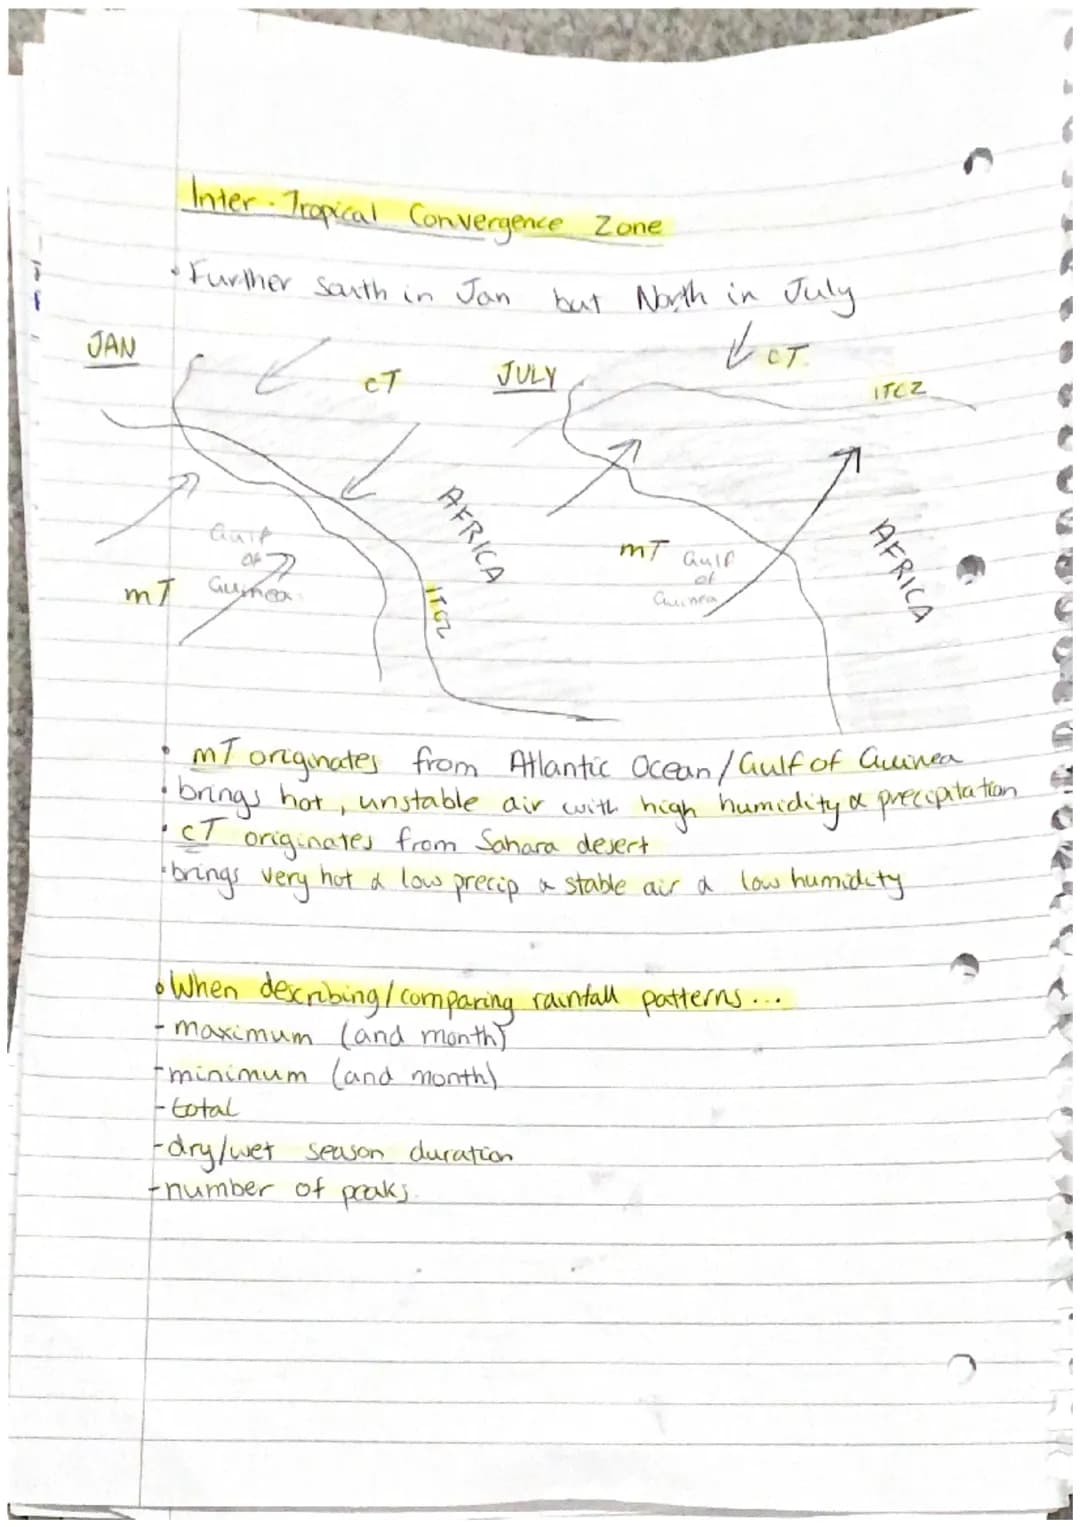 Inter-Tropical Convergence Zone
• Further south in Jan but North in July
JAN
cT
JULY
cT
ITCZ
AFRICA
Gulf
of
Guinea
mT
ITCZ
mT
Gulf
of
Guinea
AFRICA
• mT originates from Atlantic Ocean/Gulf of Guinea
• brings hot, unstable air with high humidity & precipitation
• cT originates from Sahara desert
• brings very hot & low precip & stable air & low humidity
• When describing/comparing rainfall patterns...
- maximum (and month)
- minimum (and month)
- total
- dry/wet season duration
- number of peaks.